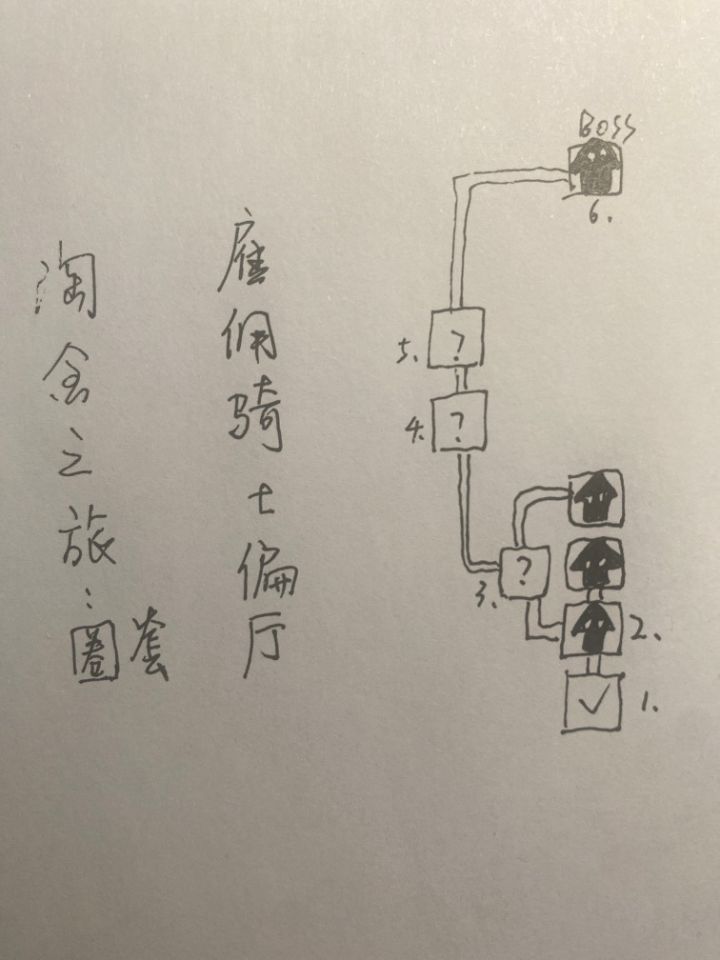 淘金之旅：圈套
雇佣骑士偏厅
BOSS
6.
?
5.
?
4.
?
3.
2.
1.